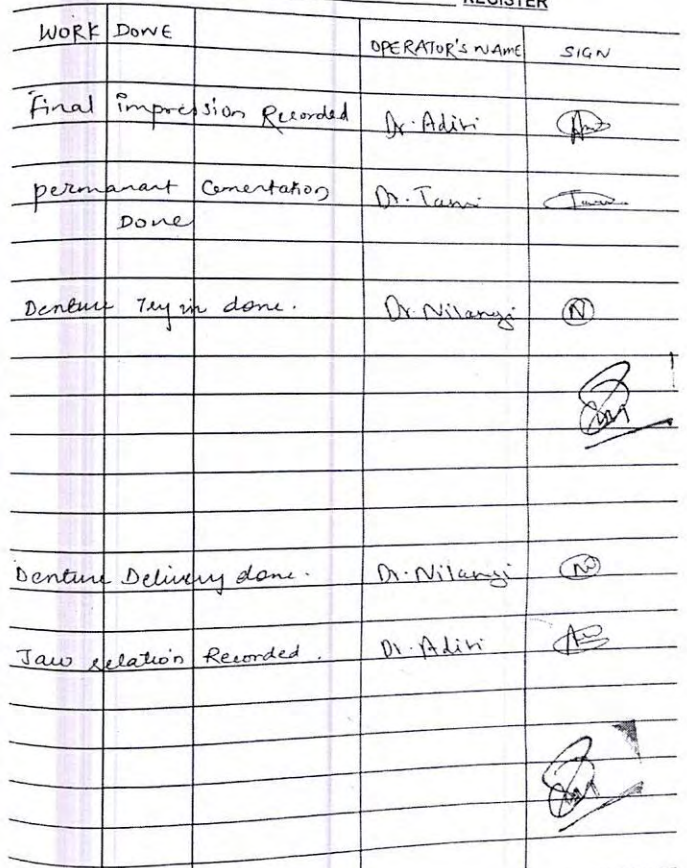 REGISTER
WORK DONE
OPERATOR'S NAME SIGN
Final impression Recorded Dr. Aditi
permanant Cementation Dr. Tanvi
Done
Denture Try in done. Dr. Nilangi N
Denture Delivery done. Dr. Nilangi
Jaw relation Recorded. Dr. Aditi